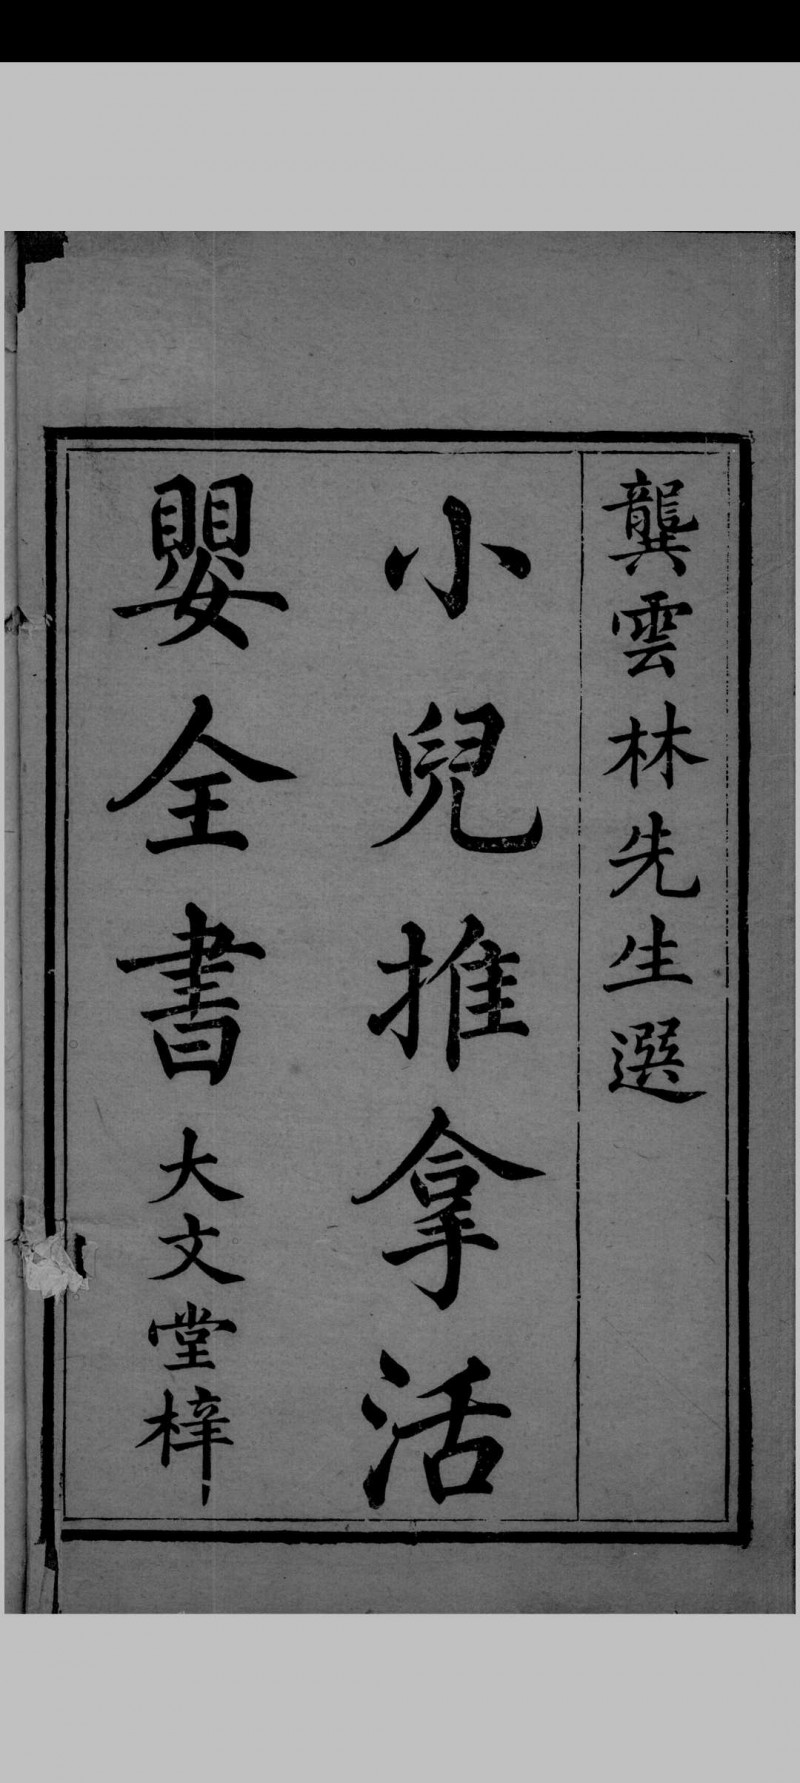 龔雲林先生選
小兒推拿活
嬰全書
大文堂梓